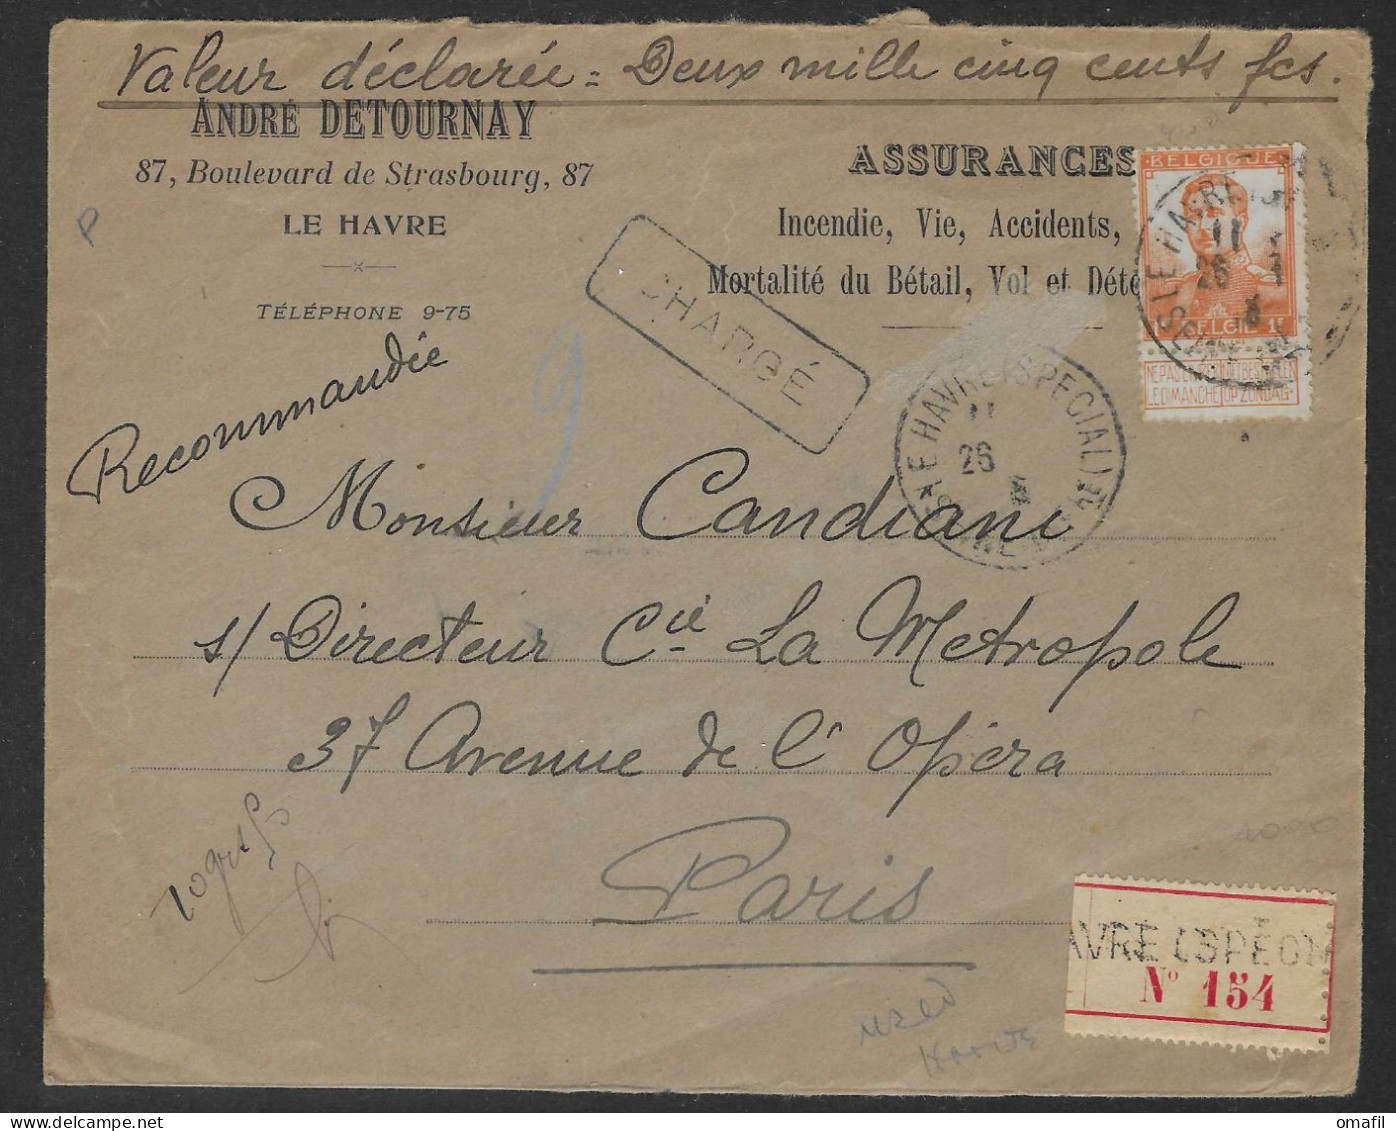 Valeur déclarée = Deux mille cinq cents fcs.
ANDRÉ DETOURNAY
87, Boulevard de Strasbourg, 87
LE HAVRE
TÉLÉPHONE 9-75
ASSURANCES
Incendie, Vie, Accidents,
Mortalité du Bétail, Vol et Dété
BELGIQUE
BELGIË 1F
NE PAS LIVRER
LE DIMANCHE
OP ZONDAG
LE HAVRE
11
26
CHARGÉ
LE HAVRE (SPECIAL)
11
26
Recommandée
Monsieur Candiani
s/ Directeur Cie La Metropole
37 Avenue de l'Opéra
Paris
P
AVRE (SPÉCI
No 154
omafil